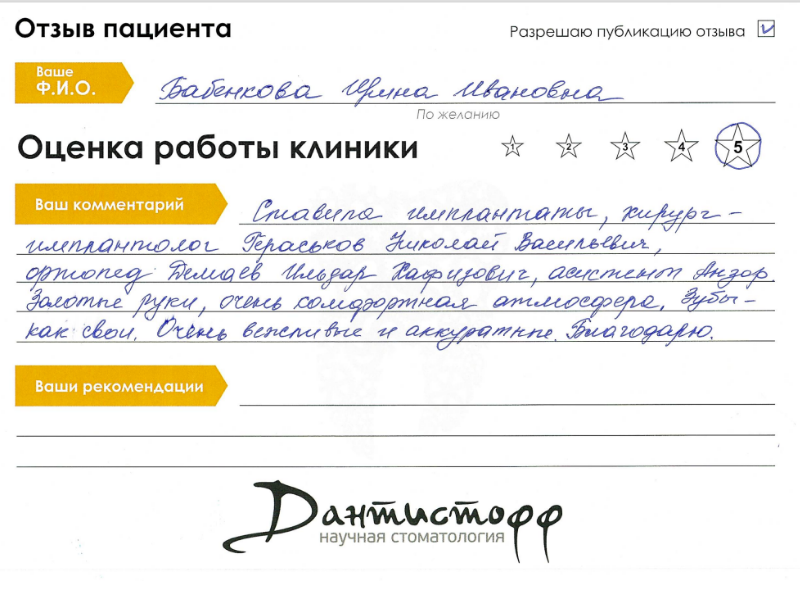 Отзыв пациента
Разрешаю публикацию отзыва
Ваше
Ф.И.О.
Бабенкова Ирина Ивановна
По желанию
Оценка работы клиники
1 2 3 4 5
Ваш комментарий
Ставила имплантаты, хирург-
имплантолог Гераськов Николай Васильевич,
ортопед Демаев Ильдар Хафизович, асистент Анзор.
Золотые руки, очень комфортная атмосфера. Зубы-
как свои. Очень вежливые и аккуратные. Благодарю.
Ваши рекомендации
Дантистофф
научная стоматология